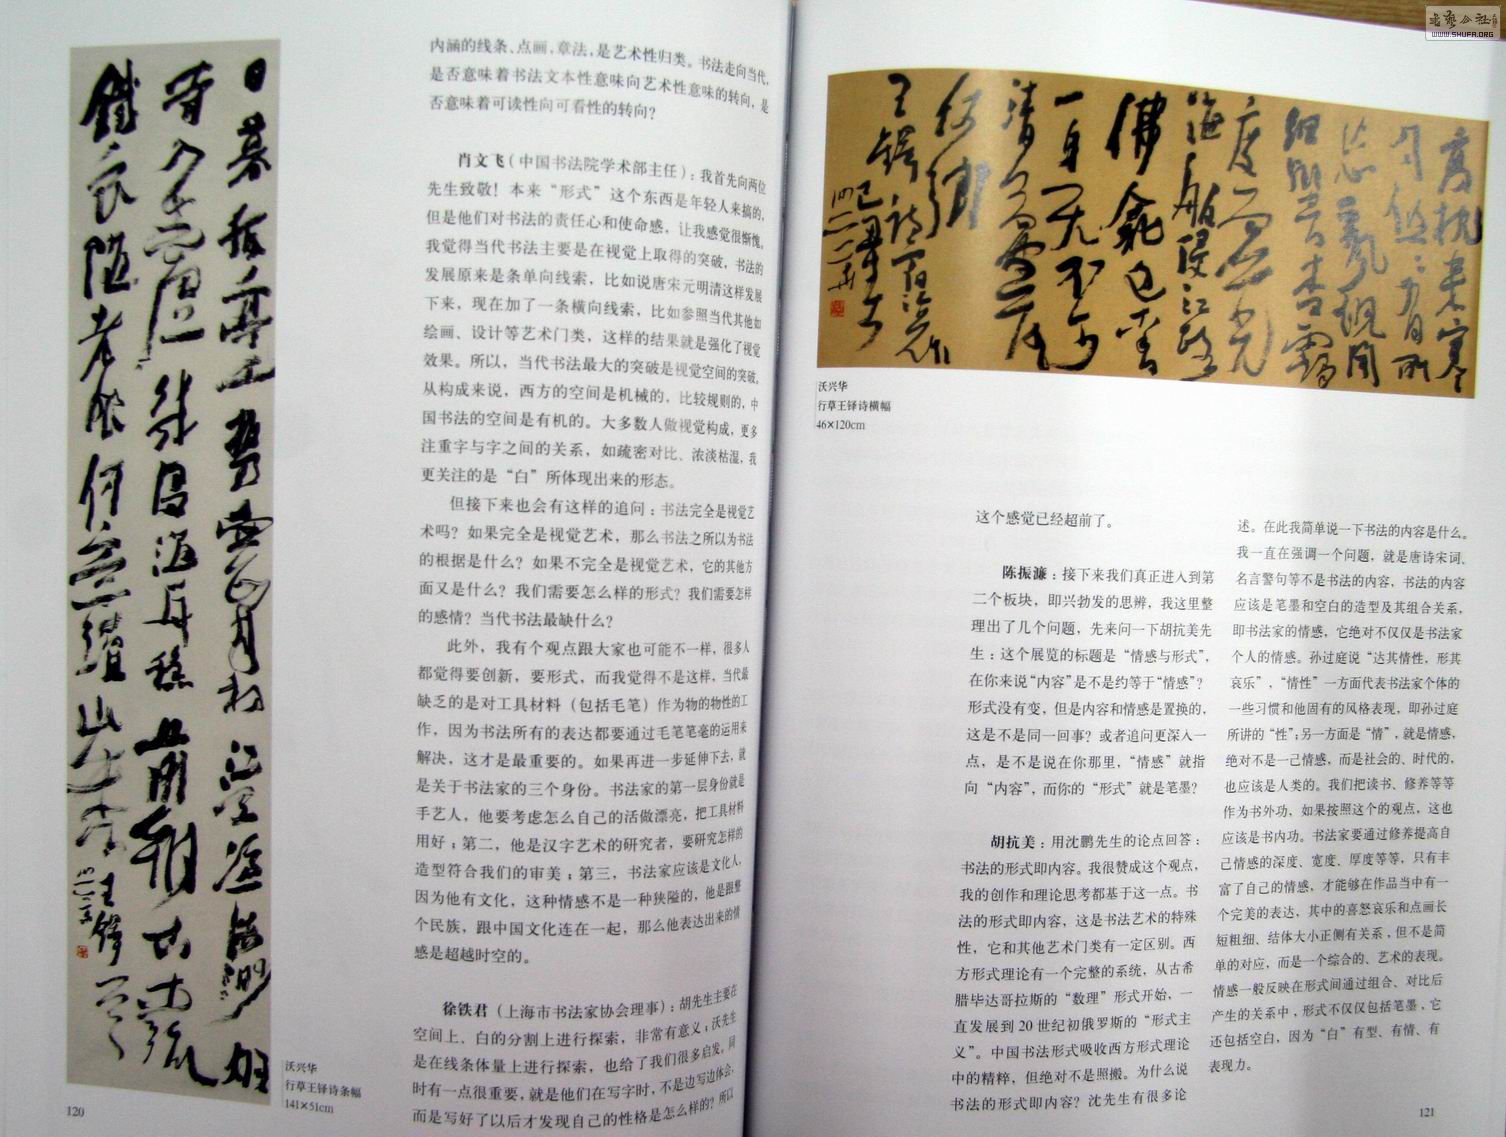 内涵的线条、点画，章法，是艺术性归类。书法走向当代，
是否意味着书法文本性意味向艺术性意味的转向，是
否意味着可读性向可看性的转向？
肖文飞（中国书法院学术部主任）：我首先向两位
先生致敬！本来“形式”这个东西是年轻人来搞的，
但是他们对书法的责任心和使命感，让我感觉很惭愧。
我觉得当代书法主要是在视觉上取得的突破，书法的
发展原来是条单向线索，比如说唐宋元明清这样发展
下来，现在加了一条横向线索，比如参照当代其他如
绘画、设计等艺术门类，这样的结果就是强化了视觉
效果。所以，当代书法最大的突破是视觉空间的突破。
从构成来说，西方的空间是机械的，比较规则的，中
国书法的空间是有机的。大多数人做视觉构成，更多
注重字与字之间的关系，如疏密对比、浓淡枯湿，我
更关注的是“白”所体现出来的形态。
但接下来也会有这样的追问：书法完全是视觉艺
术吗？如果完全是视觉艺术，那么书法之所以为书法
的根据是什么？如果不完全是视觉艺术，它的其他方
面又是什么？我们需要怎么样的形式？我们需要怎样
的感情？当代书法最缺什么？
此外，我有个观点跟大家也可能不一样，很多人
都觉得要创新，要形式，而我觉得不是这样，当代最
缺乏的是对工具材料（包括毛笔）作为物的物性的工
作，因为书法所有的表达都要通过毛笔笔毫的运用来
解决，这才是最重要的。如果再进一步延伸下去，就
是关于书法家的三个身份。书法家的第一层身份就是
手艺人，他要考虑怎么自己的活做漂亮，把工具材料
用好；第二，他是汉字艺术的研究者，要研究怎样的
造型符合我们的审美；第三，书法家应该是文化人，
因为他有文化，这种情感不是一种狭隘的，他是跟整
个民族，跟中国文化连在一起，那么他表达出来的情
感是超越时空的。
徐铁君（上海市书法家协会理事）：胡先生主要在
空间上、白的分割上进行探索，非常有意义；沃先生
是在线条体量上进行探索，也给了我们很多启发。同
时有一点很重要，就是他们在写字时，不是边写边体会，
而是写好了以后才发现自己的性格是怎么样的？所以
沃兴华
行草王铎诗条幅
141×51cm
120
沃兴华
行草王铎诗横幅
46×120cm
这个感觉已经超前了。
陈振濂：接下来我们真正进入到第
二个板块，即兴勃发的思辨，我这里整
理出了几个问题，先来问一下胡抗美先
生：这个展览的标题是“情感与形式”，
在你来说“内容”是不是约等于“情感”？
形式没有变，但是内容和情感是置换的，
这是不是同一回事？或者追问更深入一
点，是不是说在你那里，“情感”就指
向“内容”，而你的“形式”就是笔墨？
胡抗美：用沈鹏先生的论点回答：
书法的形式即内容。我很赞成这个观点，
我的创作和理论思考都基于这一点。书
法的形式即内容，这是书法艺术的特殊
性，它和其他艺术门类有一定区别。西
方形式理论有一个完整的系统，从古希
腊毕达哥拉斯的“数理”形式开始，一
直发展到20世纪初俄罗斯的“形式主
义”。中国书法形式吸收西方形式理论
中的精粹，但绝对不是照搬。为什么说
书法的形式即内容？沈先生有很多论
述。在此我简单说一下书法的内容是什么。
我一直在强调一个问题，就是唐诗宋词、
名言警句等不是书法的内容，书法的内容
应该是笔墨和空白的造型及其组合关系，
即书法家的情感，它绝对不仅仅是书法家
个人的情感。孙过庭说“达其情性，形其
哀乐”，“情性”一方面代表书法家个体的
一些习惯和他固有的风格表现，即孙过庭
所讲的“性”；另一方面是“情”，就是情感，
绝对不是一己情感，而是社会的、时代的，
也应该是人类的。我们把读书、修养等等
作为书外功，如果按照这个的观点，这也
应该是书内功。书法家要通过修养提高自
己情感的深度、宽度、厚度等等，只有丰
富了自己的情感，才能够在作品当中有一
个完美的表达，其中的喜怒哀乐和点画长
短粗细、结体大小正侧有关系，但不是简
单的对应，而是一个综合的、艺术的表现。
情感一般反映在形式间通过组合、对比后
产生的关系中，形式不仅仅包括笔墨，它
还包括空白，因为“白”有型、有情、有
表现力。
121
WWW.SHUFA.ORG